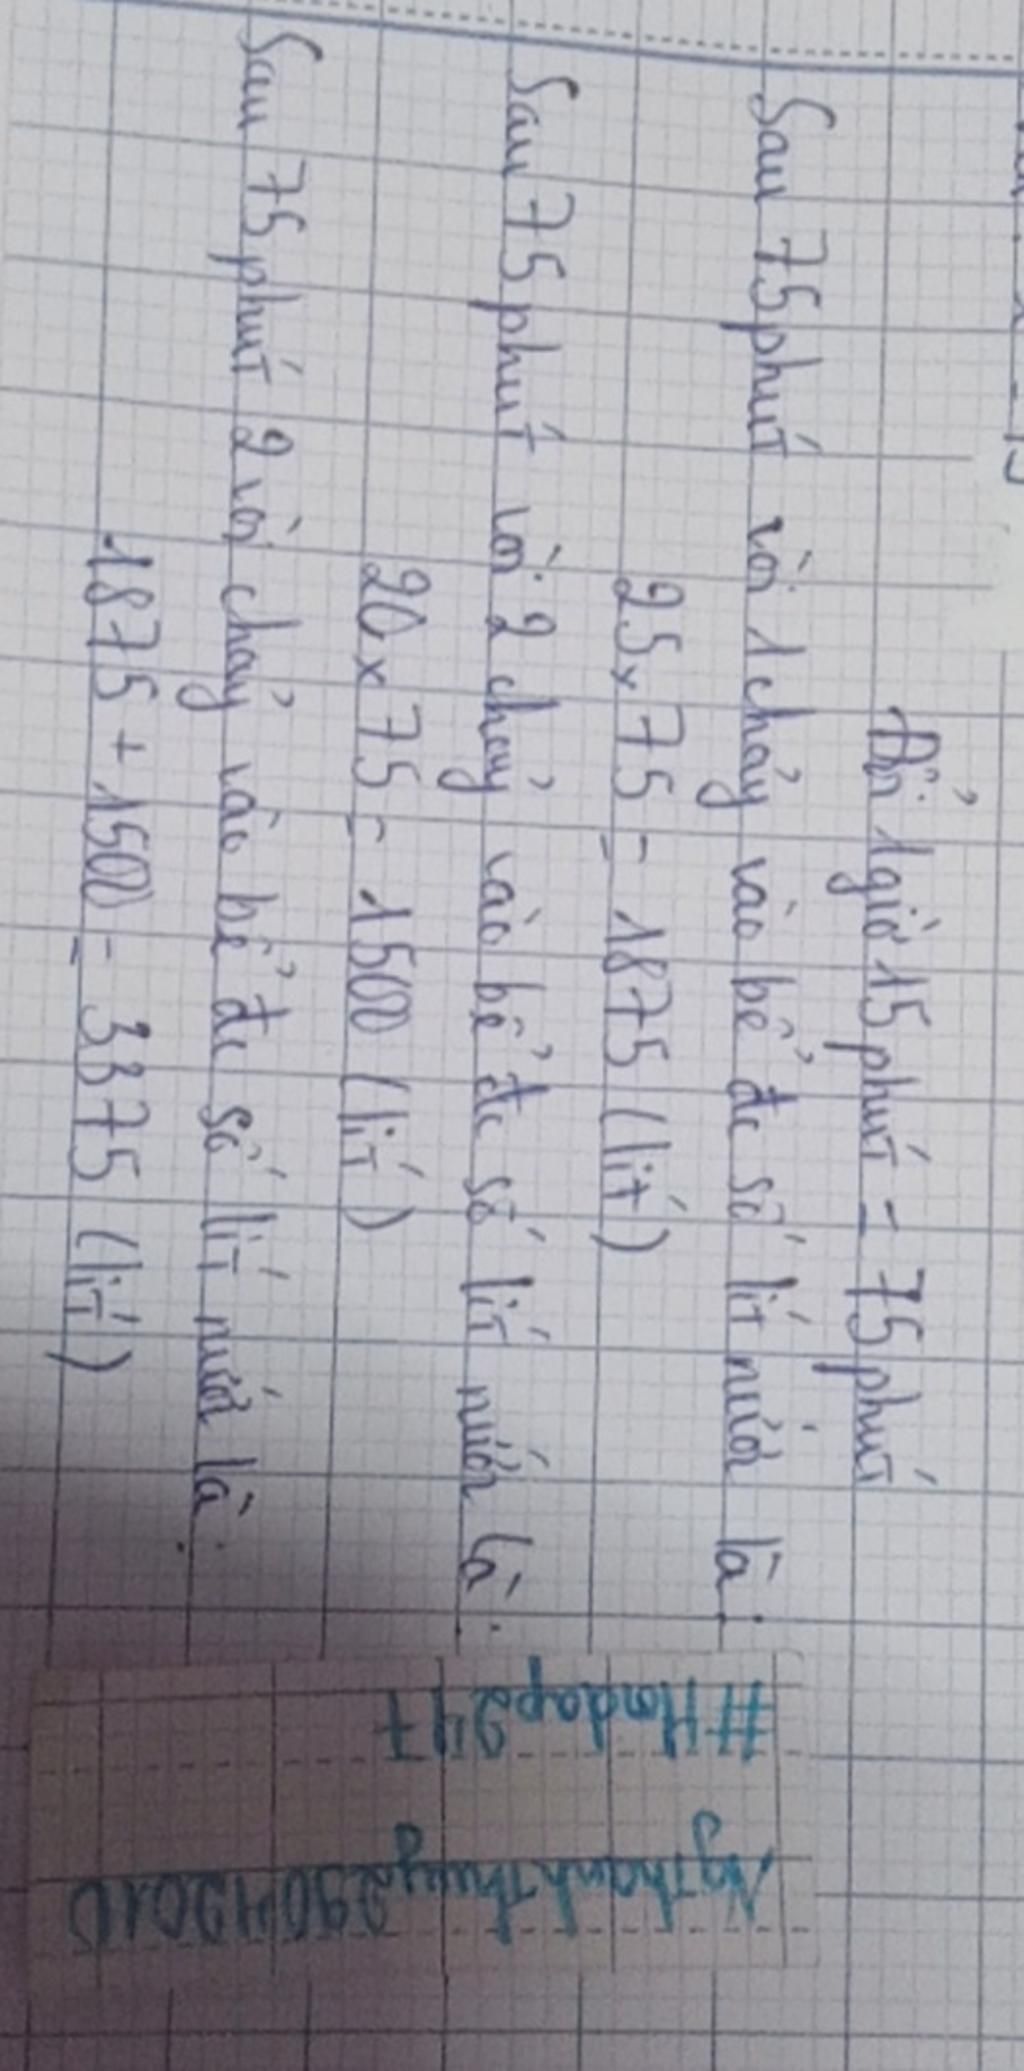 Đổi 1 giờ 15 phút = 75 phút
Sau 75 phút vòi 1 chảy vào bể đc số lít nước là:
25 x 75 = 1875 (lít)
Sau 75 phút vòi 2 chảy vào bể đc số lít nước là:
20 x 75 = 1500 (lít)
Sau 75 phút 2 vòi chảy vào bể đc số lít nước là:
1875 + 1500 = 3375 (lít)
#Hoidap247
NgThanhThuy29042010